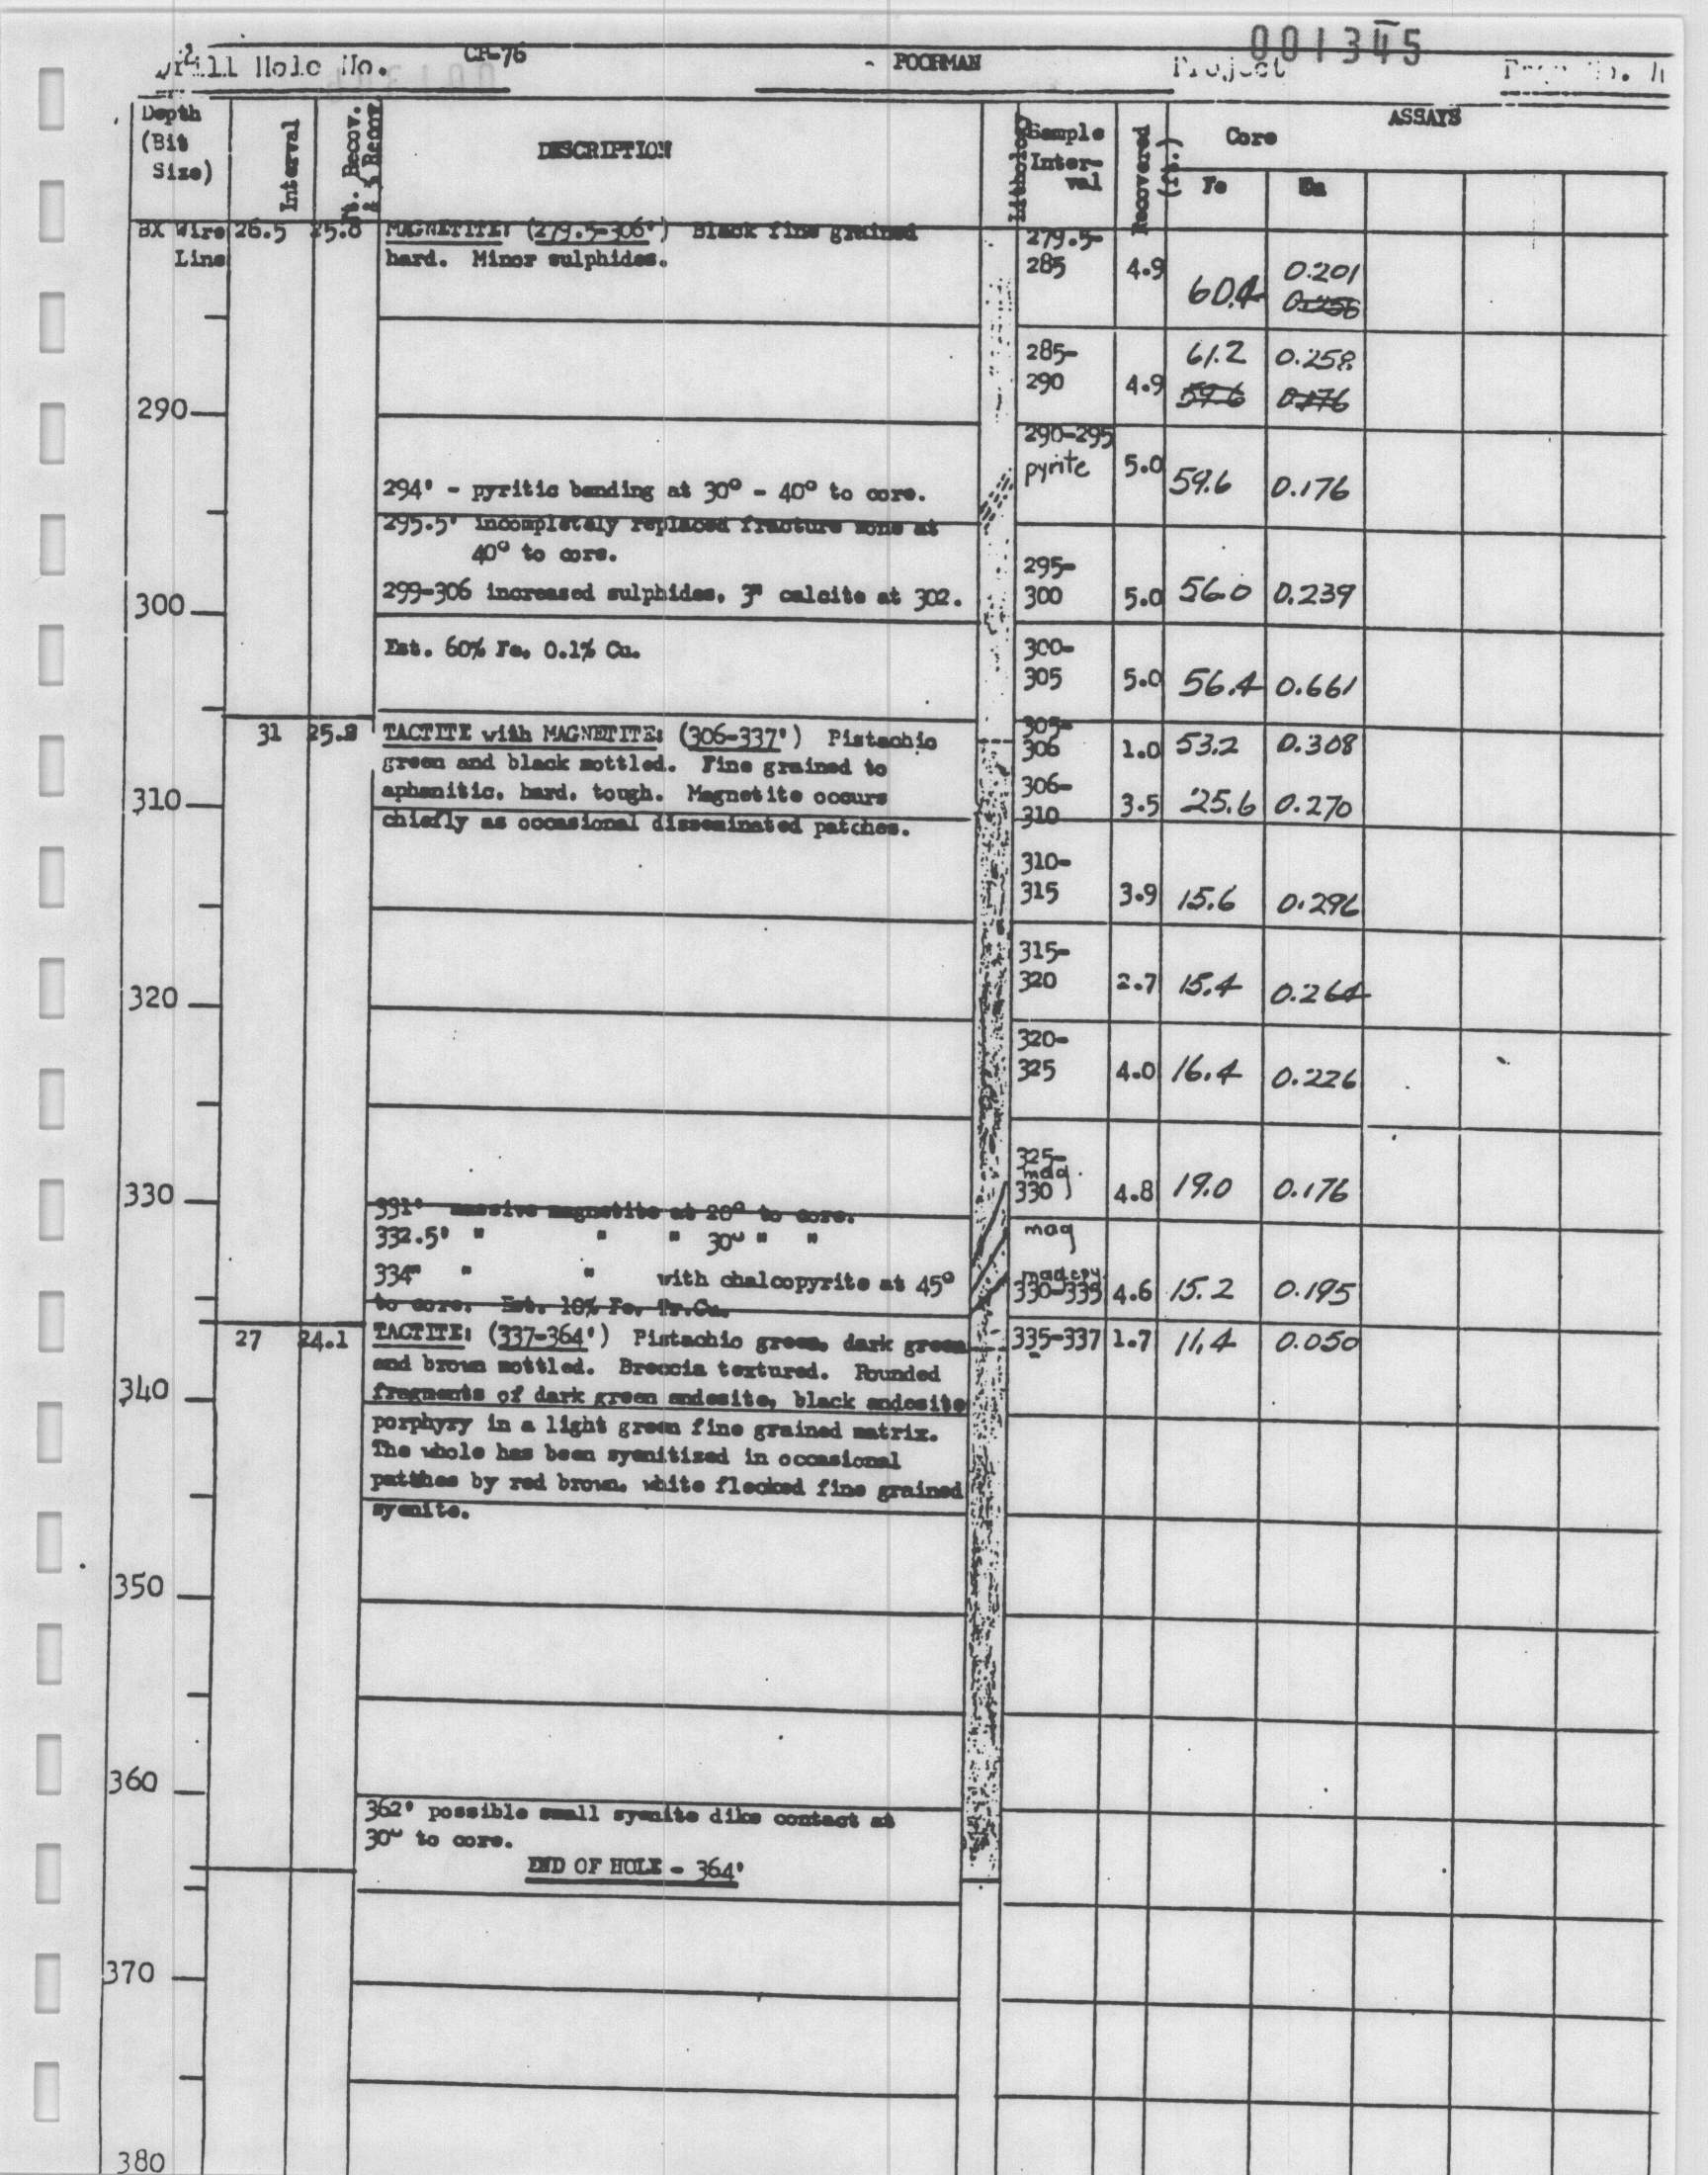 001345
Drill Hole No. CH-76 POORMAN Project Page No. 4
Depth (Bit Size)
Interval
Ft. Recov. & % Recov
DESCRIPTION
Lithology
Sample Inter- val
Recovered (ft.)
ASSAYS
Core
Fe
BX Wire Line 26.5 25.8 MAGNETITE: (279.5-306') Black fine grained
hard. Minor sulphides.
279.5-
285 4.9 60.4 0.201
285- 61.2 0.258
290 4.9 59.6 0.176
290
290-295
pyrite 5.0 59.6 0.176
294' - pyritic banding at 30° - 40° to core.
295.5' incompletely replaced fracture zone at
40° to core.
295-
300 5.0 56.0 0.239
299-306 increased sulphides. 3" calcite at 302.
300
Est. 60% Fe. 0.1% Cu.
300-
305 5.0 56.4 0.661
31 25.8 TACTITE with MAGNETITE: (306-337') Pistachio
green and black mottled. Fine grained to
aphanitic, hard, tough. Magnetite occurs
chiefly as occasional disseminated patches.
305-
306 1.0 53.2 0.308
306-
310 3.5 25.6 0.270
310
310-
315 3.9 15.6 0.296
315-
320 2.7 15.4 0.264
320
320-
325 4.0 16.4 0.226
325-
mag.
330 4.8 19.0 0.176
330
331' massive magnetite at 20° to core.
332.5' " " " 30° " "
mag
334" " " with chalcopyrite at 45°
to core. Est. 10% Fe. Tr.Cu.
mag cpy
330-335 4.6 15.2 0.195
27 24.1 TACTITE: (337-364') Pistachio green, dark green
and brown mottled. Breccia textured. Rounded
fragments of dark green andesite, black andesite
porphyry in a light green fine grained matrix.
The whole has been syenitized in occasional
patthes by red brown, white flecked fine grained
syenite.
335-337 1.7 11.4 0.050
340
350
360
362' possible small syenite dike contact at
30° to core.
END OF HOLE - 364'
370
380